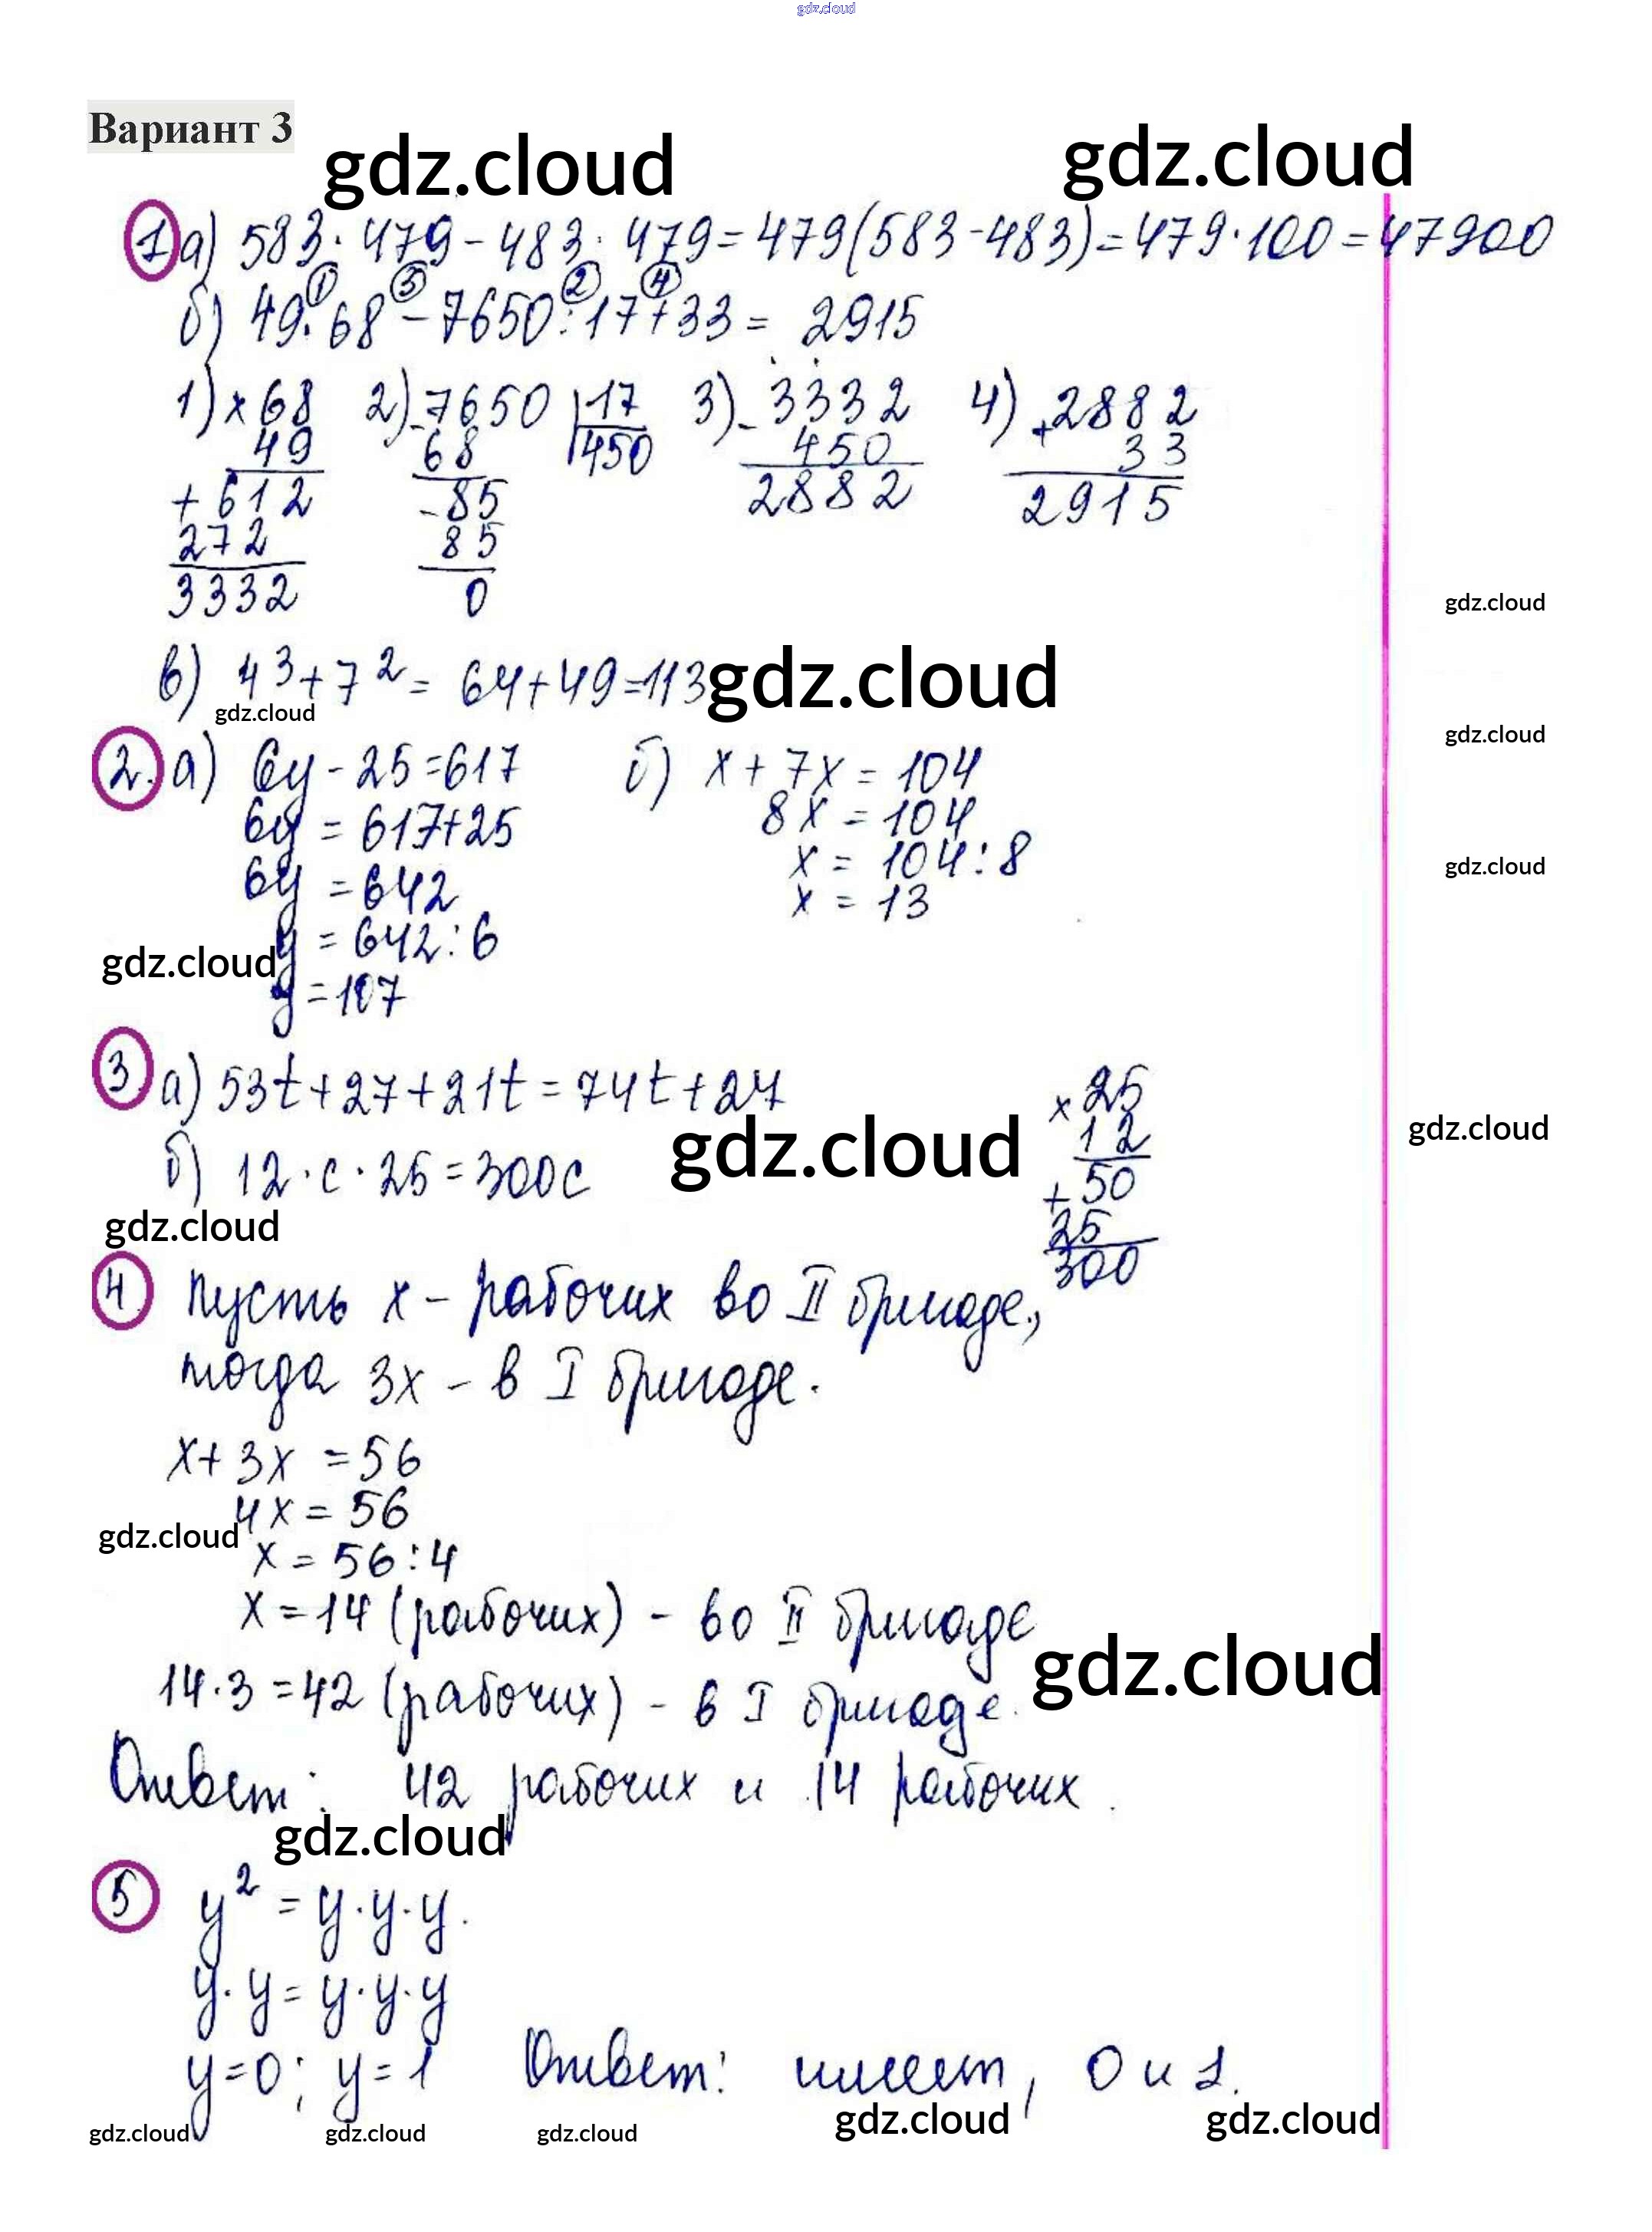 gdz.cloud
Вариант 3
gdz.cloud gdz.cloud
1 а) 583 · 479 - 483 · 479 = 479(583 - 483) = 479 · 100 = 47900
1 3 2 4
б) 49 · 68 - 7650 : 17 + 33 = 2915
1) × 68 2) - 7650 17 3) - 3332 4) + 2882
49 68 450 450 33
+ 612 - 85 2882 2915
272 85
3332 0
gdz.cloud
в) 4³ + 7² = 64 + 49 = 113 gdz.cloud
gdz.cloud
gdz.cloud
2. а) 6y - 25 = 617 б) x + 7x = 104
6y = 617 + 25 8x = 104
6y = 642 x = 104 : 8
gdz.cloud
y = 642 : 6 x = 13
gdz.cloud
y = 107
3 а) 53t + 27 + 21t = 74t + 27 × 25
gdz.cloud 12 gdz.cloud
б) 12 · c · 25 = 300c + 50
gdz.cloud 25
300
4 Пусть x - рабочих во II бригаде,
тогда 3x - в I бригаде.
x + 3x = 56
4x = 56
gdz.cloud
x = 56 : 4
x = 14 (рабочих) - во II бригаде
gdz.cloud
14 · 3 = 42 (рабочих) - в I бригаде.
Ответ: 42 рабочих и 14 рабочих.
gdz.cloud
5 y² = y · y · y.
y · y = y · y · y
y = 0; y = 1 Ответ: имеет, 0 и 1.
gdz.cloud gdz.cloud gdz.cloud gdz.cloud gdz.cloud